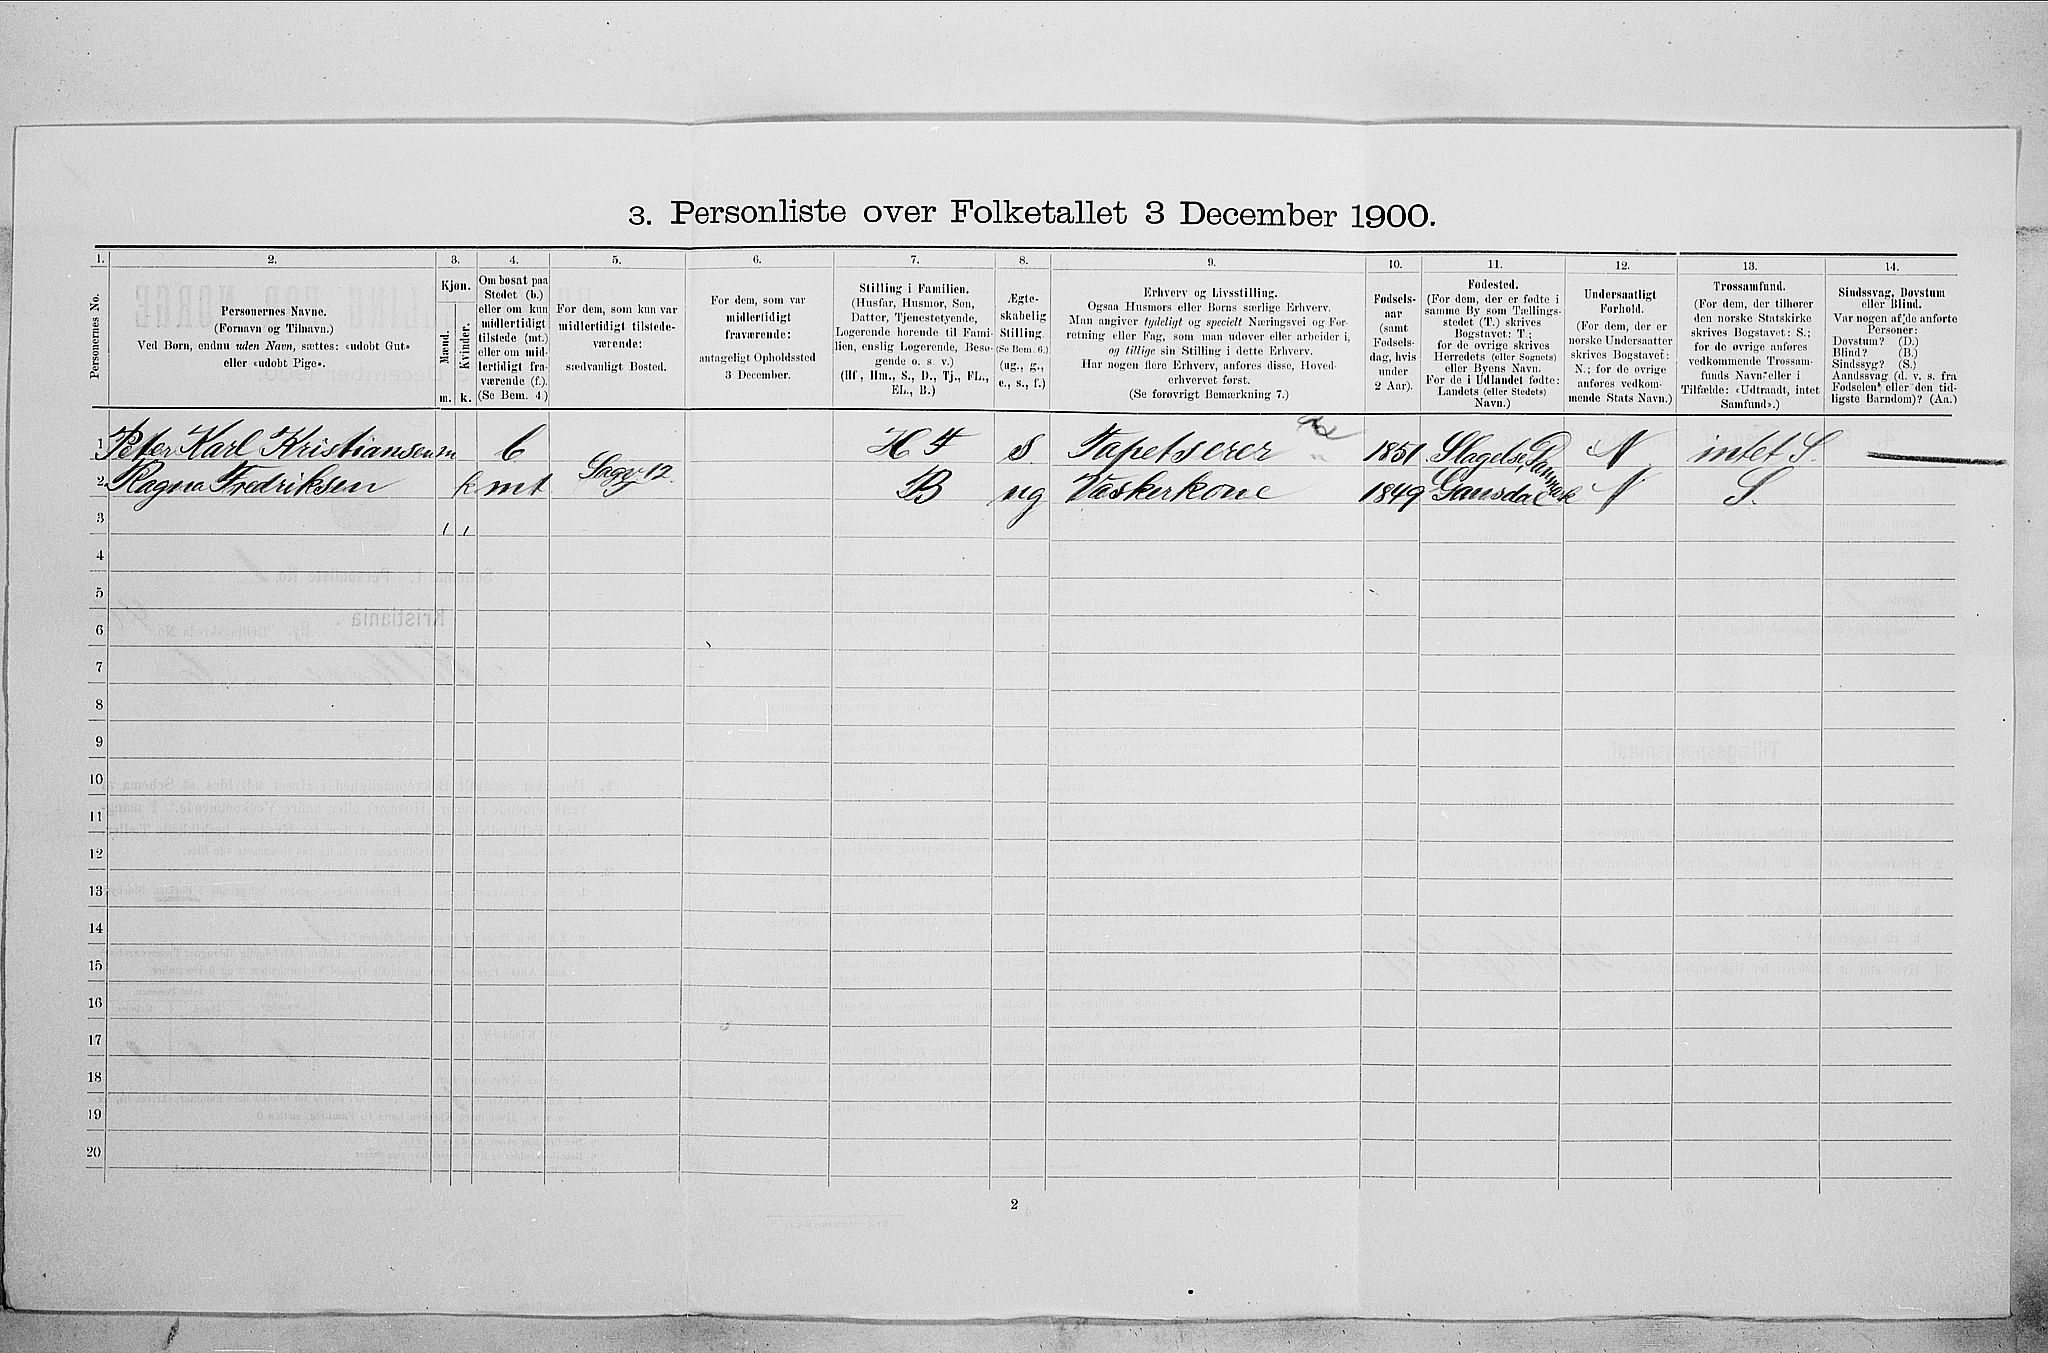 3. Personliste over Folketallet 3 December 1900.
1. 2. 3. 4. 5. 6. 7. 8. 9. 10. 11. 12. 13. 14.
Personernes No.
Personernes Navne.
(Fornavn og Tilnavn.)
Ved Børn, endnu uden Navn, sættes: «udøbt Gut»
eller «udøbt Pige».
Kjøn.
Mænd.
Kvinder.
m. k.
Om bosat paa
Stedet (b.)
eller om kun
midlertidigt
tilstede (mt.)
eller om mid-
lertidigt fra-
værende (f.).
(Se Bem. 4.)
For dem, som kun var
midlertidigt tilstede-
værende:
sædvanligt Bosted.
For dem, som var
midlertidigt
fraværende:
antageligt Opholdssted
3 December.
Stilling i Familien.
(Husfar, Husmor, Søn,
Datter, Tjenestetyende,
Logerende hørende til Fami-
lien, enslig Logerende, Besø-
gende o. s. v.)
(Hf, Hm., S., D., Tj., FL.,
EL., B.)
Ægte-
skabelig
Stilling.
(Se Bem. 6.)
(ug., g.,
e., s., f.)
Erhverv og Livsstilling.
Ogsaa Husmors eller Børns særlige Erhverv.
Man angiver tydeligt og specielt Næringsvei og For-
retning eller Fag, som man udøver eller arbeider i,
og tillige sin Stilling i dette Erhverv.
Har nogen flere Erhverv, anføres disse, Hoved-
erhvervet først.
(Se forøvrigt Bemærkning 7.)
Fødsels-
aar
(samt
Fødsels-
dag, hvis
under
2 Aar).
Fødested.
(For dem, der er fødte i
samme By som Tællings-
stedet (T.) skrives
Bogstavet: T;
for de øvrige skrives
Herredets (eller Sognets)
eller Byens Navn.
For de i Udlandet fødte:
Landets (eller Stedets)
Navn.)
Undersaatligt
Forhold.
(For dem, der er
norske Undersaatter
skrives Bogstavet:
N.; for de øvrige
anføres vedkom-
mende Stats Navn.)
Trossamfund.
(For dem, der tilhører
den norske Statskirke
skrives Bogstavet: S.;
for de øvrige anføres
vedkommende Trossam-
funds Navn eller i
Tilfælde: «Udtraadt, intet
Samfund».)
Sindssvag, Døvstum
eller Blind.
Var nogen af de anførte
Personer:
Døvstum? (D.)
Blind? (B.)
Sindssyg? (S.)
Aandssvag (d. v. s. fra
Fødselen eller den tid-
ligste Barndom)? (Aa.)
1 Peter Karl Kristiansen m b H F s. Tapetserer 1851 Slagelse, Danmark N intet S.
2 Ragna Fredriksen k mt Sagv 12. B ug Vaskerkone 1849 Gausdal N S.
3 1 1
4
5
6
7
8
9
10
11
12
13
14
15
16
17
18
19
20
2